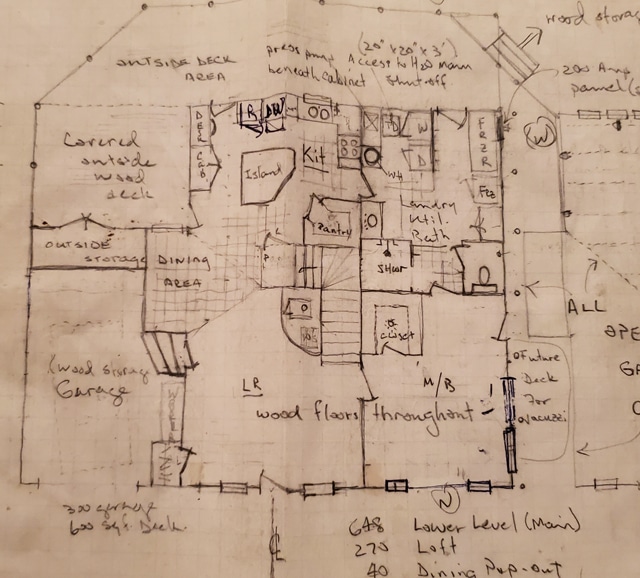 wood storage
OUTSIDE DECK
AREA
press pump
beneath cabinet
(20" x 20" x 3')
Access to H2O main
shut-off
200 Amp
pannel
Covered
outside
wood
deck
R
DW
Kit
Island
W
D
WH
FRZR
Frz
W
Landry
Util.
Bath
Pantry
OUTSIDE
storage
DINING
AREA
SHWR
closet
ALL
wood storage
Garage
LR
M/B
wood floors throughout
Future
Deck
For
Jacuzzi
N
300 garage
600 sqf Deck
648 Lower Level (Main)
270 Loft
40 Dining Pop-out